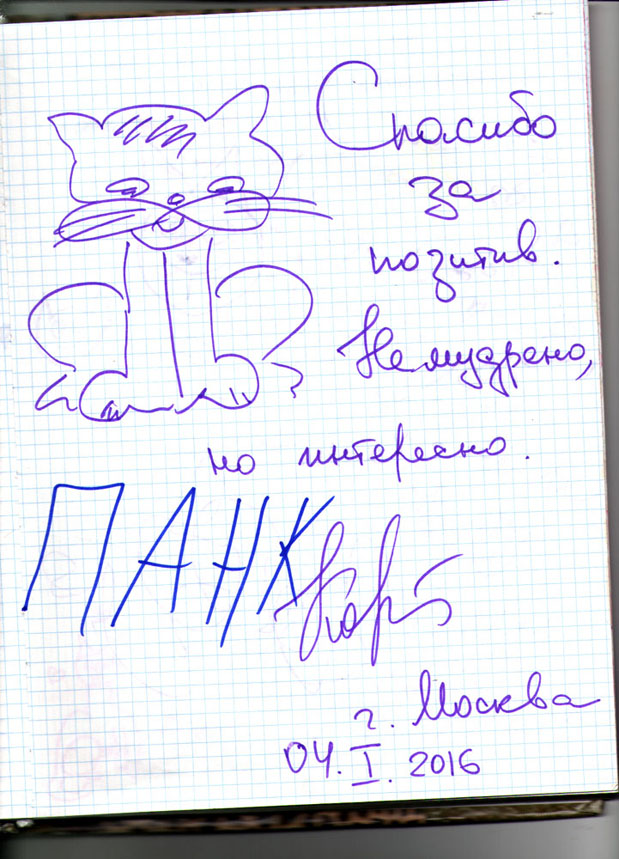 Спасибо
за
позитив.
Немудрено,
но интересно.
ПАНК
г. Москва
04.I.2016